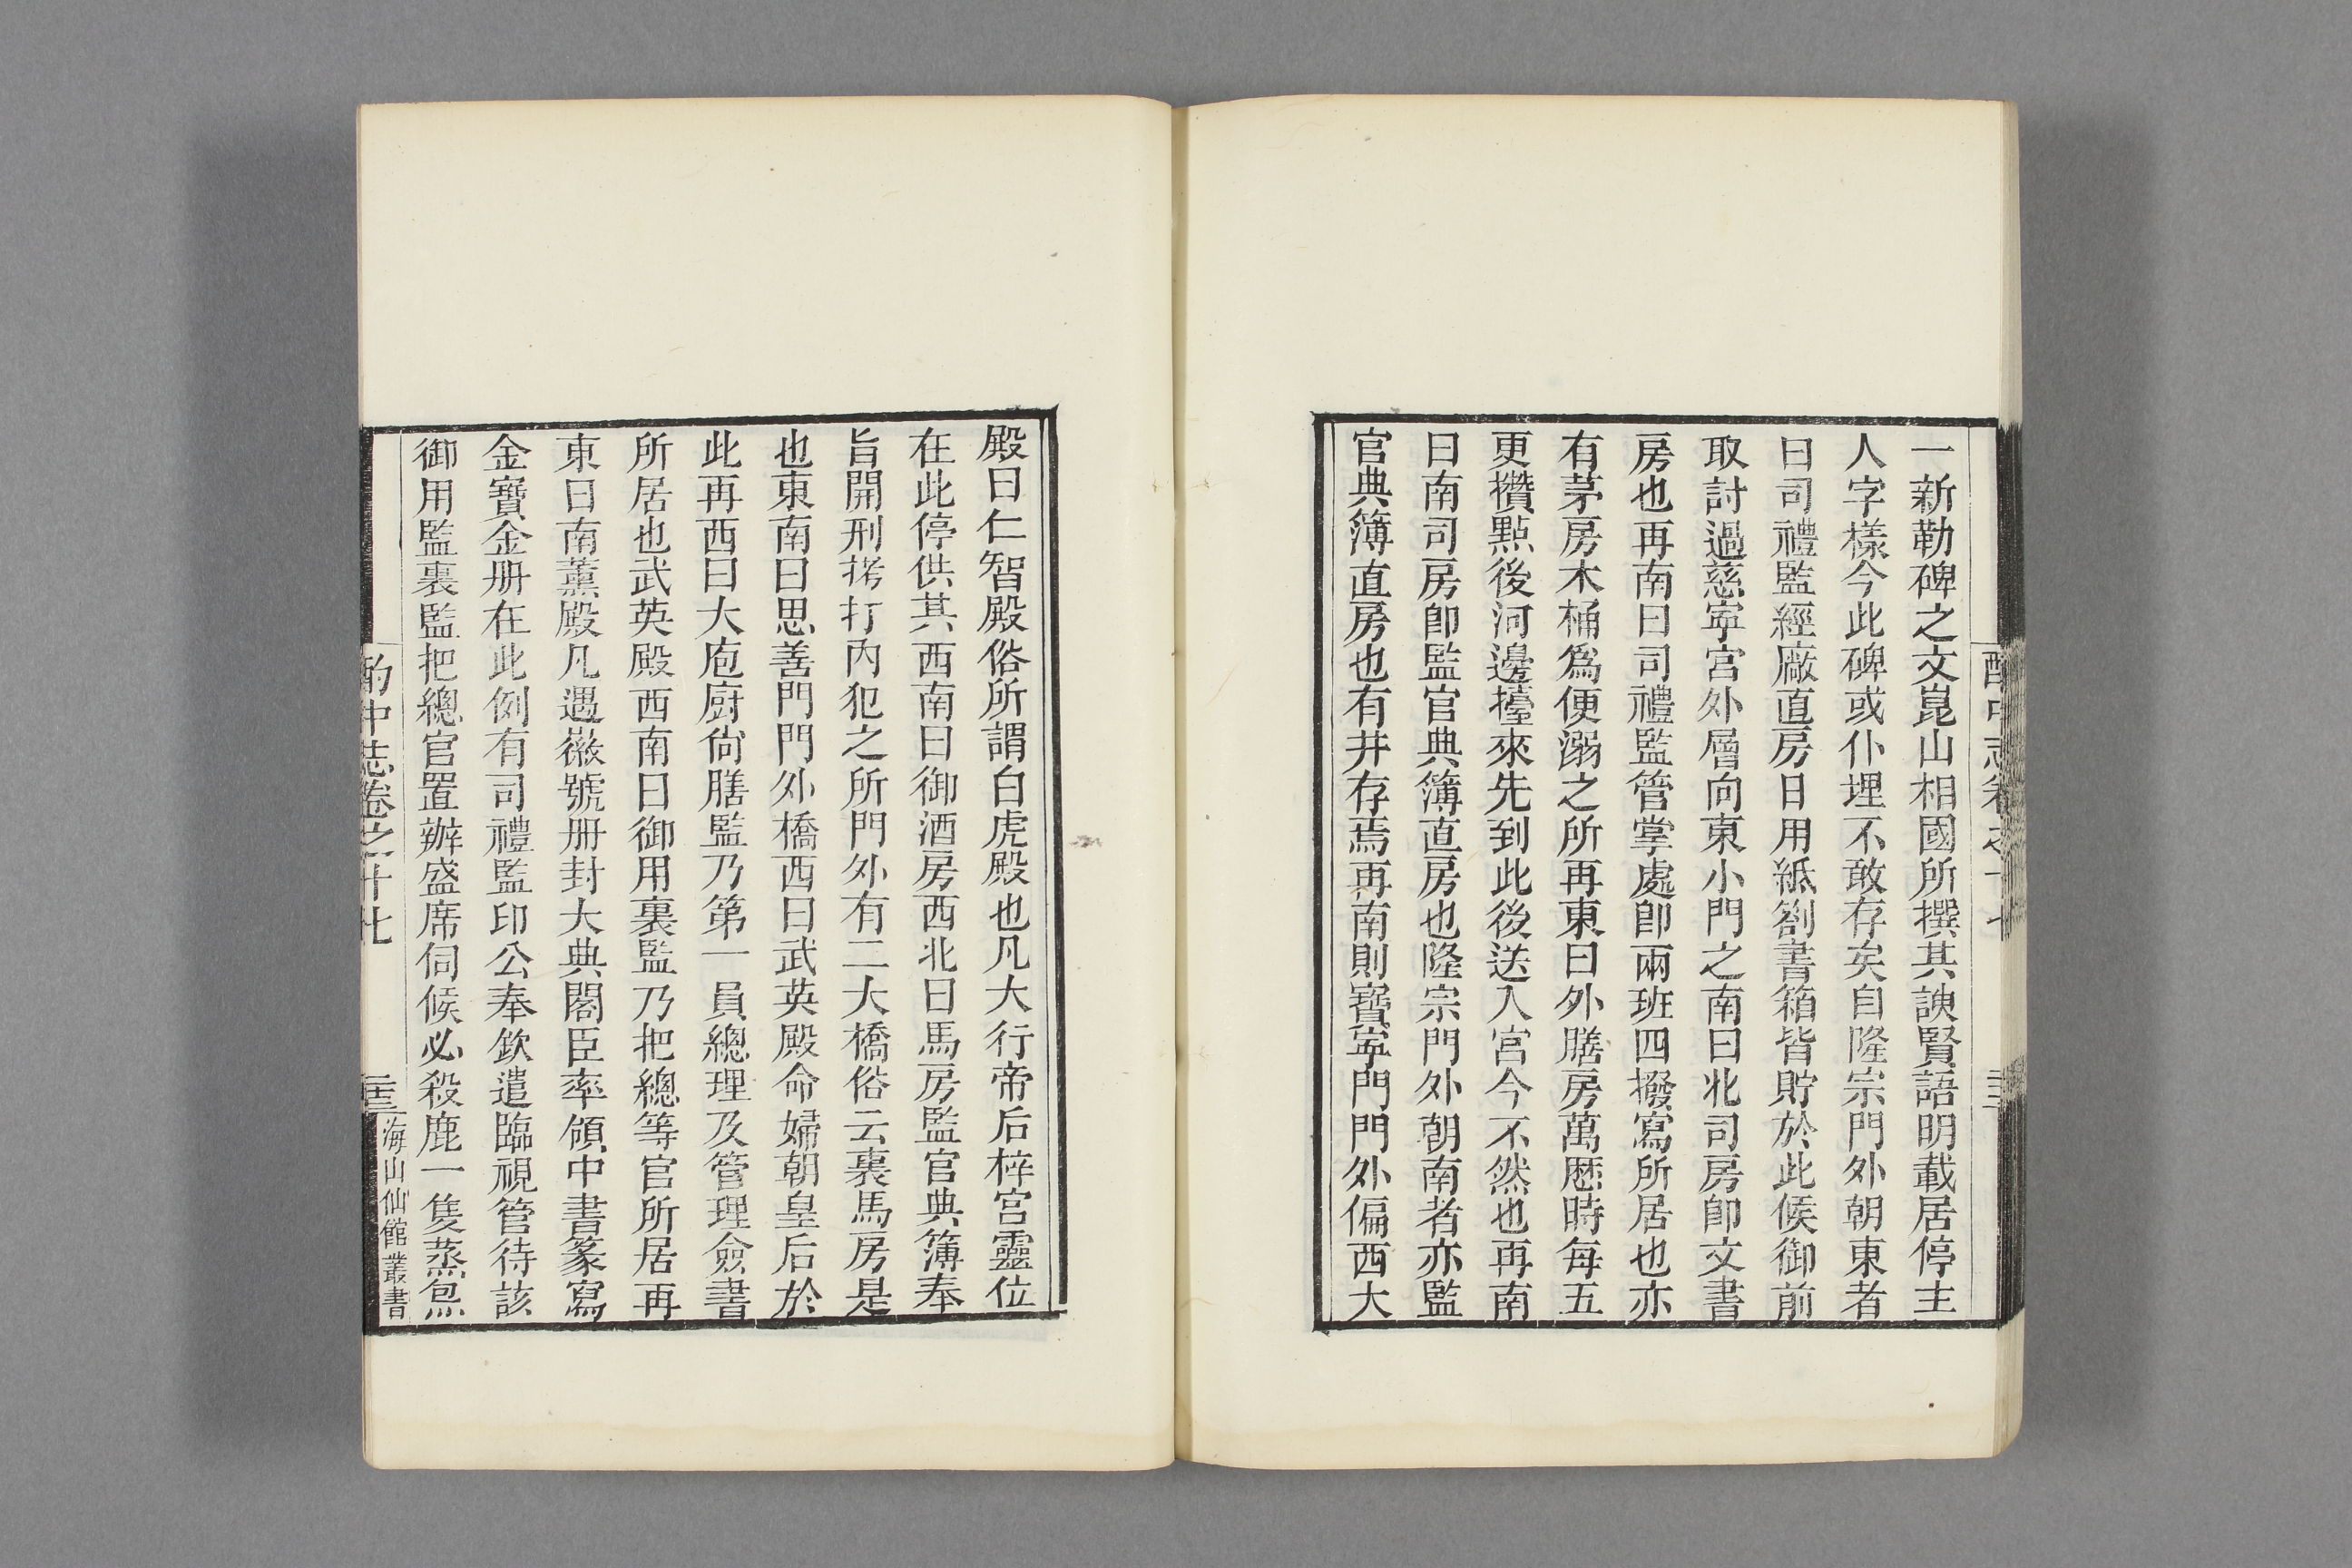 一新勒碑之文崑山相國所撰其諛賢語明載居停主
人字樣今此碑或仆埋不敢存矣自隆宗門外朝東者
曰司禮監經廠直房日用紙劄書箱皆貯於此候御前
取討過慈寧宮外層向東小門之南曰北司房卽文書
房也再南曰司禮監管掌處卽兩班四撥寫所居也亦
有茅房木桶爲便溺之所再東曰外膳房萬歷時每五
更攢點後河邊擡來先到此後送入宮今不然也再南
曰南司房卽監官典簿直房也隆宗門外朝南者亦監
官典簿直房也有井存焉再南則寶寧門門外偏西大
殿曰仁智殿俗所謂白虎殿也凡大行帝后梓宮靈位
在此停供其西南曰御酒房西北曰馬房監官典簿奉
旨開刑拷打內犯之所門外有二大橋俗云裏馬房是
也東南曰思善門門外橋西曰武英殿命婦朝皇后於
此再西曰大庖廚尙膳監乃第一員總理及管理僉書
所居也武英殿西南曰御用裏監乃把總等官所居再
東曰南薰殿凡遇徽號冊封大典閣臣率領中書篆寫
金寶金册在此例有司禮監印公奉欽遣臨視管待該
御用監裏監把總官置辦盛席伺候必殺鹿一隻蒸炰
酌中志卷之十七
海山仙館叢書